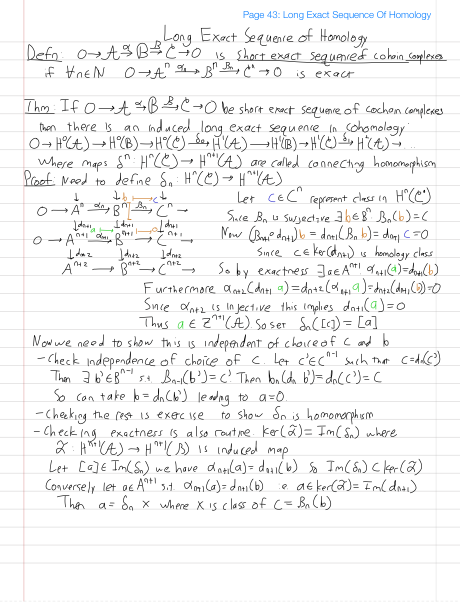 Page 43: Long Exact Sequence Of Homology
Long Exact Sequence of Homology
Defn: O→A →α B →β C→O is short exact sequence of cohain complexes
if ∀n∈N O→Aⁿ →αₙ Bⁿ →βₙ Cⁿ→O is exact
Thm: If O→A →α B →β C→O be short exact sequence of cochain complexes
then there is an induced long exact sequence in cohomology:
O→H⁰(A)→H⁰(B)→H⁰(C) →δ₀ H¹(A)→H¹(B)→H¹(C) →δ₁ H²(A)→...
Where maps δⁿ: Hⁿ(C)→Hⁿ⁺¹(A) are called connecting homomorphism
Proof: Need to define δₙ: Hⁿ(C)→Hⁿ⁺¹(A)
↓ ↓ b ↦ c ↓
O→Aⁿ →αₙ Bⁿ →βₙ Cⁿ→
↓dn+1 a ↓dn+1 ↓dn+1
O→Aⁿ⁺¹ →αn+1 Bⁿ⁺¹→Cⁿ⁺¹→
↓dn+2 ↓dn+2 ↓dn+2
Aⁿ⁺²→Bⁿ⁺²→Cⁿ⁺²→
Let c∈Cⁿ represent class in Hⁿ(C)
Since βn is surjective ∃b∈Bⁿ βn(b)=c
Now (βn+1∘dn+1)b=dn+1(βn b)=dn+1 c=0
Since c∈ker(dn+1) is homology class
So by exactness ∃a∈Aⁿ⁺¹ αn+1(a)=dn+1(b)
Furthermore αn+2(dn+2 a)=dn+2(αn+1 a)=dn+2(dn+1(b))=0
Since αn+2 is injective this implies dn+1(a)=0
Thus a∈Zⁿ⁺¹(A) So set δn([c])=[a]
Now we need to show this is independent of choice of c and b
-Check independence of choice of c. Let c'∈Cⁿ⁻¹ such that c=dn(c')
Then ∃b'∈Bⁿ⁻¹ s.t. βn-1(b')=c'. Then bn(dn b')=dn(c')=c
So can take b=dn(b') leading to a=0.
-Checking the rest is exercise to show δn is homomorphism
-Checking exactness is also routine. ker(α̃)=Im(δn) where
α̃: Hⁿ⁺¹(A)→Hⁿ⁺¹(B) is induced map
Let [a]∈Im(δn) we have αn+1(a)=dn+1(b) so Im(δn)⊂ker(α̃)
Conversely let a∈Aⁿ⁺¹ s.t. αn+1(a)=dn+1(b) i.e. a∈ker(α̃)=Im(dn+1)
Then a=δn x where x is class of c=βn(b)